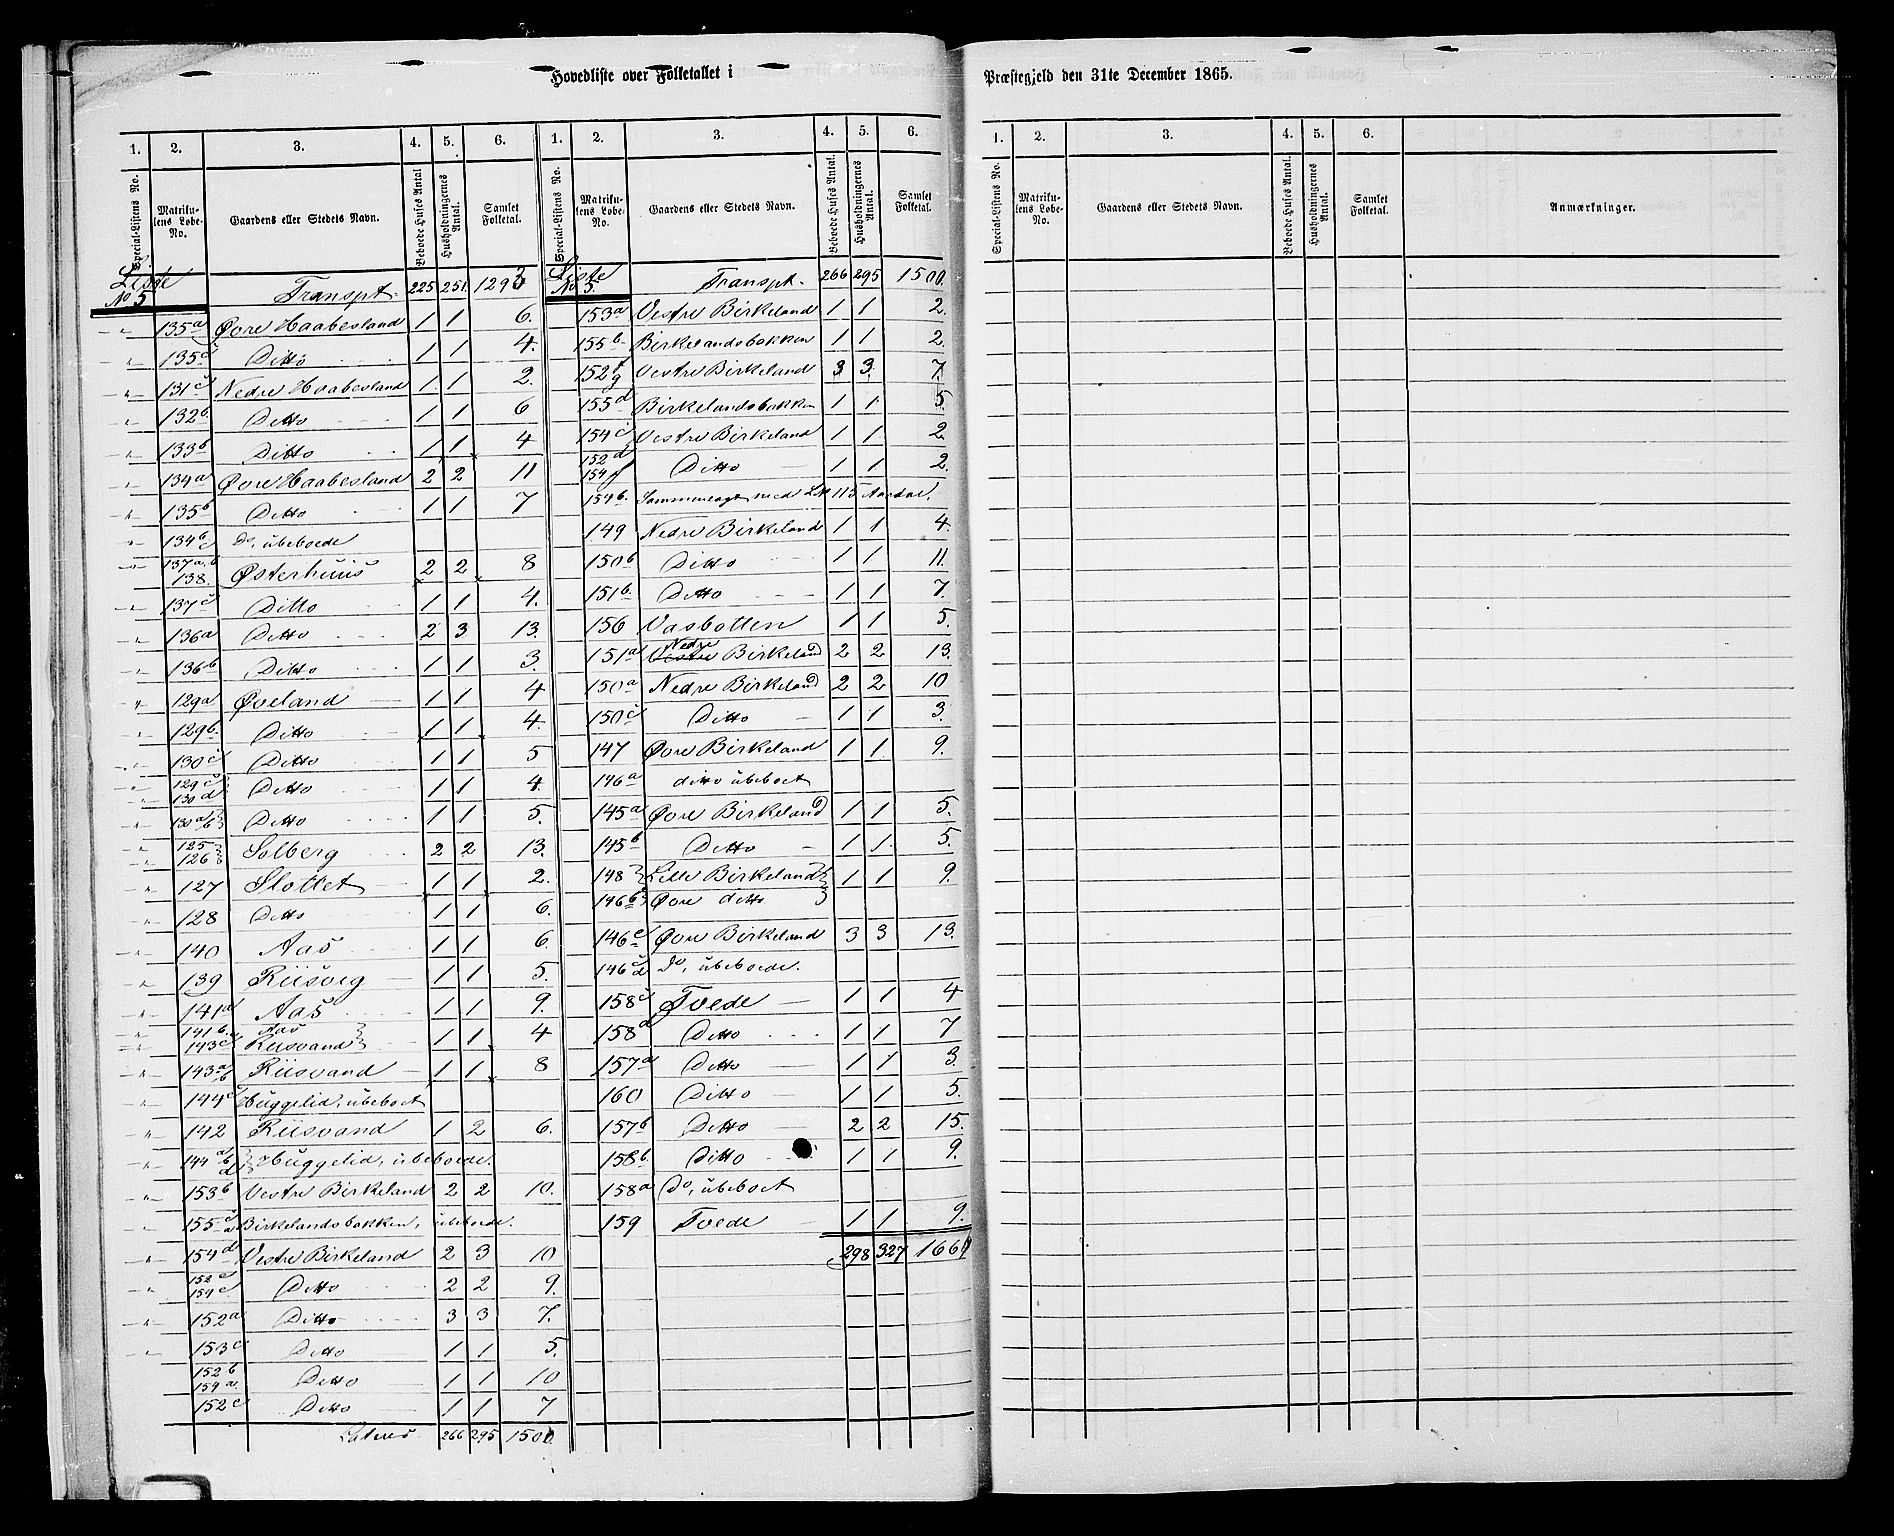 Hovedliste over Folketallet i
Præstegjeld den 31te December 1865.
1. 2. 3. 4. 5. 6. 1. 2. 3. 4. 5. 6.
Special-Listens No. Matrikulens Løbe-No. Gaardens eller Stedets Navn. Beboede Huses Antal. Husholdningernes Antal. Samlet Folketal.
Special-Listens No. Matrikulens Løbe-No. Gaardens eller Stedets Navn. Beboede Huses Antal. Husholdningernes Antal. Samlet Folketal.
Liste No 5 Transpt. 225 251 1293
"135a Øvre Haabesland 1 1 6.
" 135c Ditto 1 1 4.
" 131c Nedre Haabesland 1 1 2.
" 132b Ditto 1 1 6
" 133b Ditto 1 1 4
" 134a Øvre Haabesland 2 2 11
" 135b Ditto 1 1 7
" 134b c Do, ubeboede
" 137a,b 138. Østerhuus 2 2 8
" 137c Ditto 1 1 4.
" 136a Ditto 2 3 13.
" 136b Ditto 1 1 3.
" 129a Øveland 1 1 4
129b Ditto 1 1 4.
" 130c Ditto 1 1 5
" 129c 130d Ditto 1 1 4.
" 130a b Ditto 1 1 5.
" 125 126 Solberg 2 2 13.
" 127 Slottet 1 1 2.
" 128 Ditto 1 1 6.
" 140 Aas 1 1 6.
" 139 Riisveg 1 1 5.
" 141a Aas 1 1 9.
" 141b Aas
" 143c Riisvand 1 1 4
" 143a b Riisvand 1 1 8
" 144c Huggelid, ubeboet
" 142 Riisvand 1 2 6.
" 144 a b d Huggelid, ubeboede.
" 153b Vestre Birkeland 2 2 10.
" 155 c a Birkelandsbakken, ubeboede.
" 154d Vestre Birkeland 2 3 10
" 152e 154e Ditto 2 2 9.
" 152a Ditto 3 3 7.
" 153c Ditto 1 1 5.
152b 154a Ditto 1 1 10
152c Ditto 1 1 7
Lateres 266 295 1500.
Liste No 5. Transpt. 266 295 1500.
153a Vestre Birkeland 1 1 2.
155b Birkelandsbakken 1 1 2.
152 f g Vestre Birkeland 3 3. 7.
155d Birkelandsbakken 1 1 5.
154c Vestre Birkeland 1 1 2.
152d 154f Ditto 1 1 2.
154b Sammenlagt med LN 115
149 Nedre Birkeland 1 1 4.
150b Ditto 1 1 11.
151b Ditto 1 1 7.
156 Vasbotten 1 1 5.
151a Nedre Vestre Birkeland 2 2 13.
150a Nedre Birkeland 2 2 10
150c Ditto 1 1 3.
147 Øvre Birkeland 1 1 9.
146a ditto ubeboet
145a Øvre Birkeland 1 1 5.
145b Ditto 1 1. 5.
148 Lille Birkeland 1 1 9.
146b Øvre ditto
146e Øvre Birkeland 3 3 13.
146 c d Do, ubeboede.
158c Tvede 1 1 4
158d Ditto 1 1 7
157a Ditto 1 1 3.
160 Ditto 1 1 5.
157b Ditto 2 2 15.
158b Ditto 1 1 9.
158a Do, ubeboet
159 Tvede 1 1 9.
298 327
1. 2. 3. 4. 5. 6.
Special-Listens No. Matrikulens Løbe-No. Gaardens eller Stedets Navn. Beboede Huses Antal. Husholdningernes Antal. Samlet Folketal. Anmærkninger.